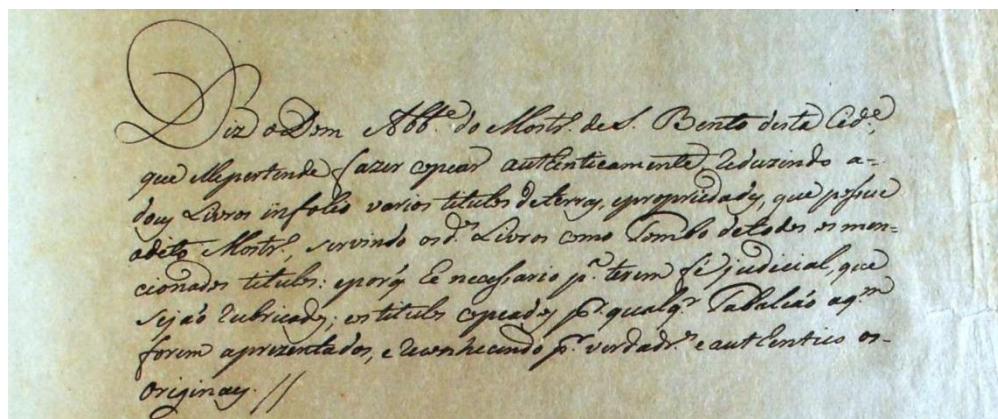 Diz o Dom Abb.e do Mostr.o de S. Bento desta Cid.e,
que elle pertende fazer copear authenticamente, reduzindo a-
dous Livros in folio varios titulos de terras, e propriedades, que possue
o dito Mostr.o, servindo os d.os Livros como Tombo de todos os men-
cionados titulos: e porq̃ he necessario p.a terem fé judicial, que
sejaõ rubricados, e os titulos copeados p.r qualq.r Tabaleaõ a q.m
forem aprezentados, e reconhecendo p.r verdadr.os e authenticos os-
Originaes. //